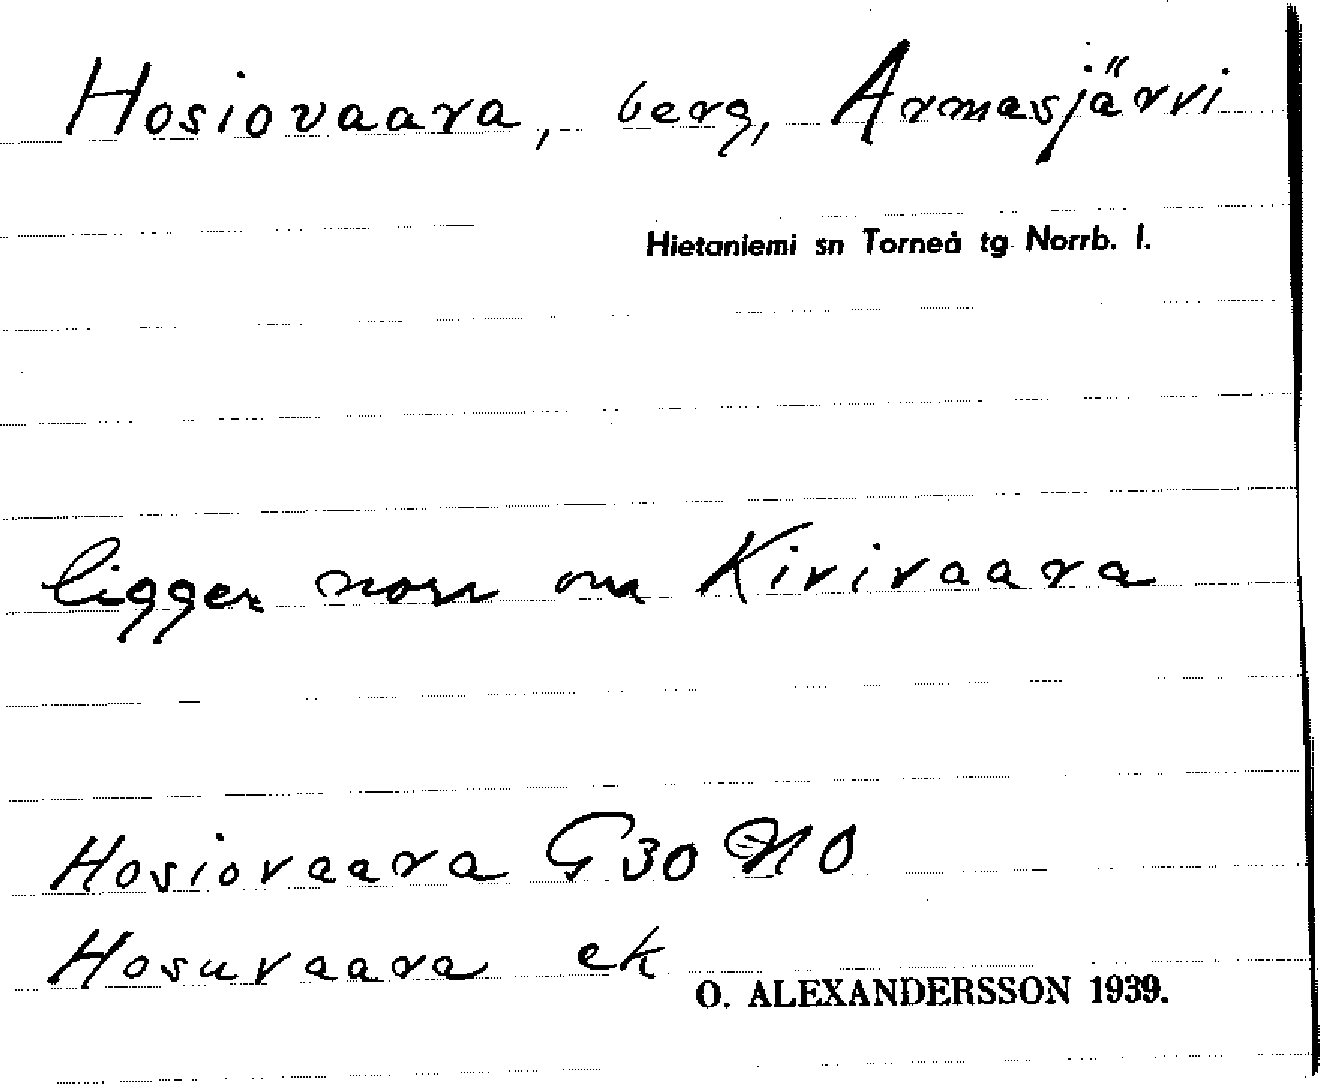 Hosiovaara, berg, Armasjärvi
Hietaniemi sn Torneå tg Norrb. l.
ligger norr om Kivivaara
Hosiovaara G 30 NO
Hosuvaara ek
O. ALEXANDERSSON 1939.